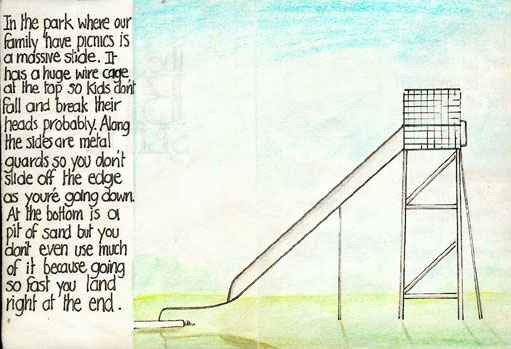 In the park where our
family have picnics is
a massive slide. It
has a huge wire cage
at the top so kids don't
fall and break their
heads probably. Along
the sides are metal
guards so you don't
slide off the edge
as you're going down.
At the bottom is a
pit of sand but you
don't even use much
of it because going
so fast you land
right at the end.